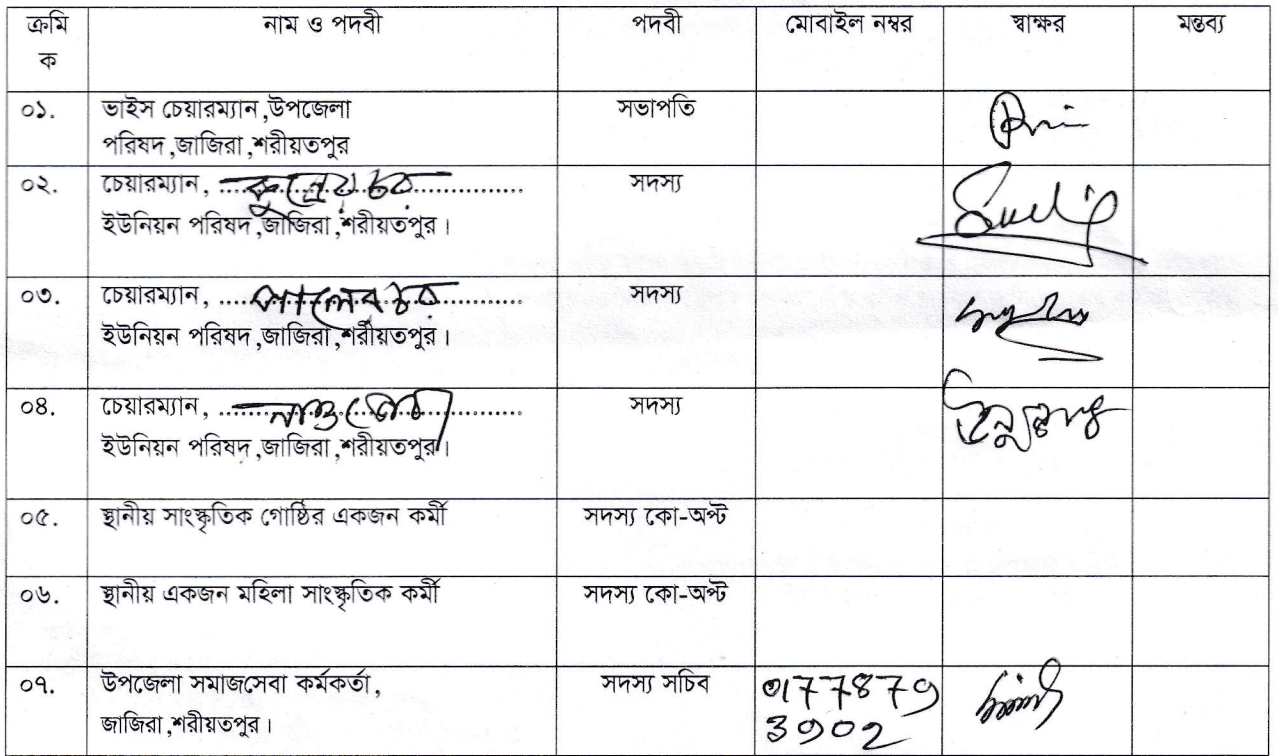 ক্রমি নাম ও পদবী পদবী মোবাইল নম্বর স্বাক্ষর মন্তব্য
ক
০১. ভাইস চেয়ারম্যান,উপজেলা সভাপতি
পরিষদ,জাজিরা,শরীয়তপুর
০২. চেয়ারম্যান, .......কুন্ডেরচর....... সদস্য
ইউনিয়ন পরিষদ,জাজিরা,শরীয়তপুর।
০৩. চেয়ারম্যান, .......পালেরচর....... সদস্য
ইউনিয়ন পরিষদ,জাজিরা,শরীয়তপুর।
০৪. চেয়ারম্যান, .......নাওডোবা....... সদস্য
ইউনিয়ন পরিষদ,জাজিরা,শরীয়তপুর।
০৫. স্থানীয় সাংস্কৃতিক গোষ্ঠির একজন কর্মী সদস্য কো-অপ্ট
০৬. স্থানীয় একজন মহিলা সাংস্কৃতিক কর্মী সদস্য কো-অপ্ট
০৭. উপজেলা সমাজসেবা কর্মকর্তা, সদস্য সচিব 0177879
জাজিরা,শরীয়তপুর। 3902